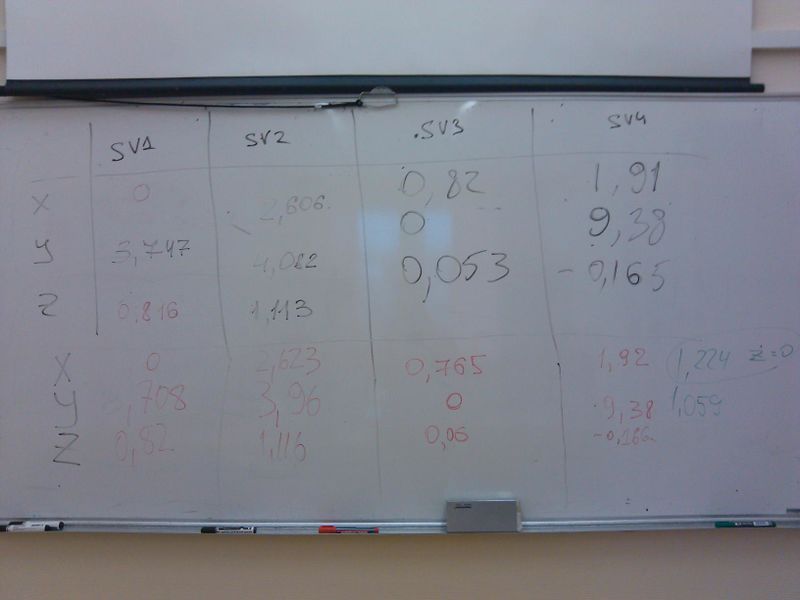 SV1 SV2 SV3 SV4
X 0 2,606 0,82 1,91
Y 3,747 4,082 0 9,38
Z 0,816 1,113 0,053 -0,165
X 0 2,623 0,765 1,92 1,224 Z=0
Y ,708 3,96 0 9,38 1,059
Z 0,82 1,116 0,05 -0,166